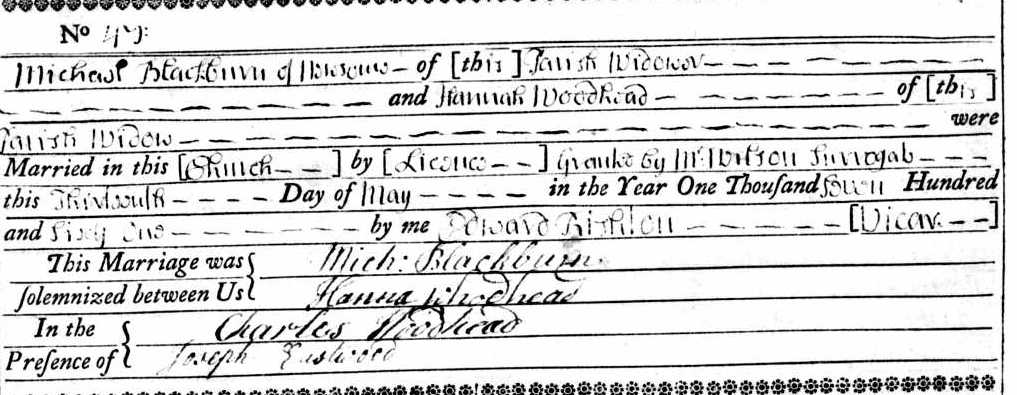 No 47:
Michael Blackburn of Newsome – of [this] Parish Widower – – – – – – –
– – – – – – – – – and Hannah Woodhead – – – – – – – of [this]
Parish Widow – – – – – – – – – – – – – – – – – – – were
Married in this [Church – – ] by [Licence – – ] Grante by Mr. Wilson Surrogat – – –
this Thirteenth – – – – Day of May – – – – in the Year One Thouſand Seven Hundred
and Sixty One – – – – – – by me Edward Rishton – – – – – – [Vicar – – ]
This Marriage was { Mich: Blackburn
ſolemnized between Us { Hanna Whodhead
In the { Charles Woodhead
Preſence of { Joseph Eastwood